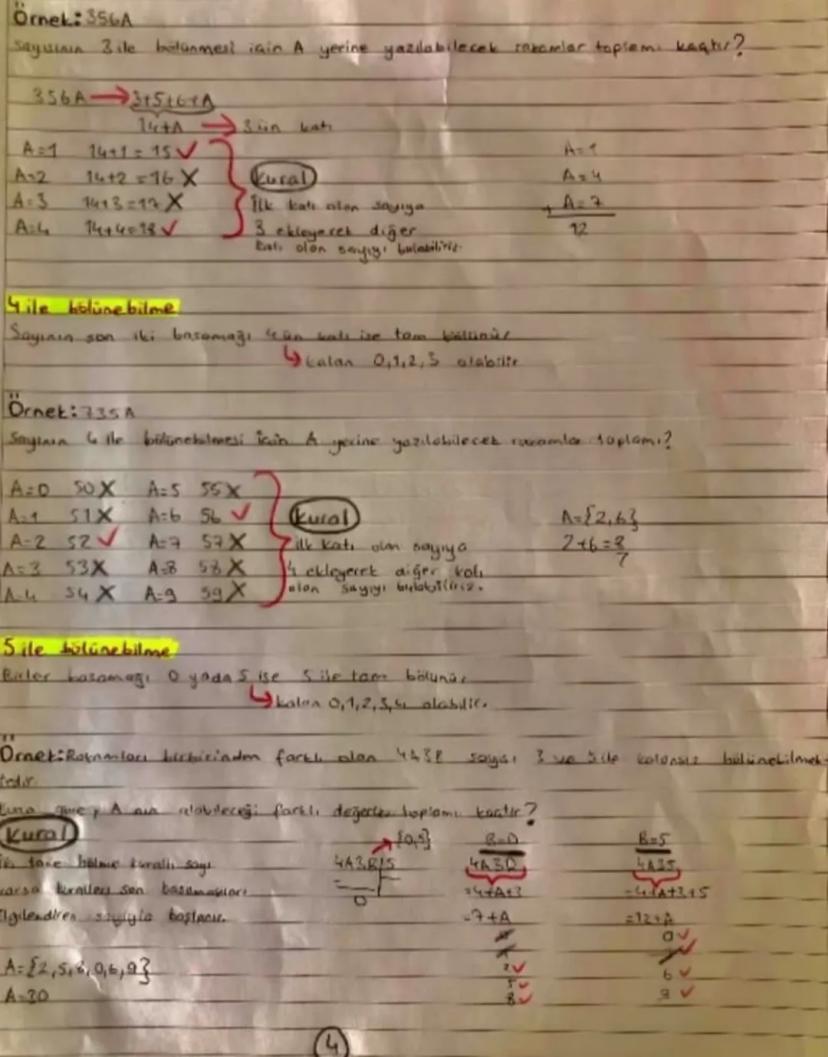 Örnek: 356A
Sayısının 3 ile bölünmesi için A yerine yazılabilecek rakamlar toplamı kaçtır?
356A → 3+5+6+A
14+A → 3'ün katı
A=1 14+1=15 ✓ A=1
A=2 14+2=16 X Kural A=4
A=3 14+3=17 X İlk katı olan sayıya + A=7
A=4 14+4=18 ✓ 3 ekleyerek diğer 12
katı olan sayıyı bulabiliriz.
4 ile bölünebilme
Sayının son iki basamağı 4'ün katı ise tam bölünür
↳ kalan 0,1,2,3 olabilir
Örnek: 735A
Sayının 4 ile bölünebilmesi için A yerine yazılabilecek rakamlar toplamı?
A=0 50 X A=5 55 X
A=1 51 X A=6 56 ✓ Kural A={2,6}
A=2 52 ✓ A=7 57 X ilk katı olan sayıya 2+6=8
A=3 53 X A=8 58 X 4 ekleyerek diğer katı
A=4 54 X A=9 59 X olan sayıyı bulabiliriz.
5 ile bölünebilme
Birler basamağı 0 yada 5 ise 5 ile tam bölünür
↳ kalan 0,1,2,3,4 olabilir.
Örnek: Rakamları birbirinden farklı olan 4A3B sayısı 3 ve 5 ile kalansız bölünebilmek-
tedir.
Buna göre, A nın alabileceği farklı değerler toplamı kaçtır?
Kural {0,5} B=0 B=5
iki tane bölme kuralı sayı 4A3B 5 4A30 4A35
varsa kuralları son basamakları 0 =4+A+3 =4+A+3+5
ilgilendiren sayıyla başlanır. =7+A =12+A
0 ✓
A={2,5,8,0,6,9} 2 ✓ 6 ✓
5 ✓
A=30 8 ✓ 9 ✓
4